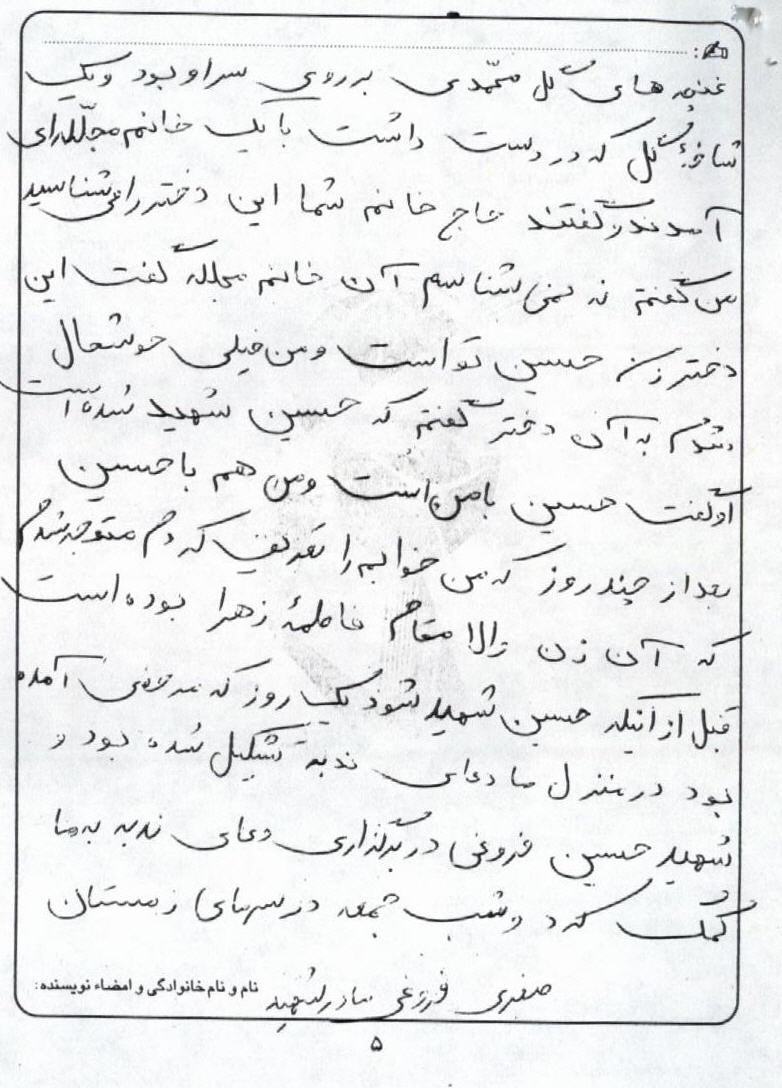 غنچه های گل محمدی بر روی سر او بود و یک
شاخهٔ گل که در دست داشت با یک خانم مجلّله‌ای
آمدند و گفتند حاج خانم شما این دختر را می شناسید
من گفتم نه نمی شناسم آن خانم مجلله گفت این
دختر زن حسین تو است و من خیلی خوشحال
شدم به آن دختر گفتم که حسین شهید شده است
او گفت حسین با من است و من هم با حسین
بعد از چند روز که من خوابم را تعریف کردم متوجه شدم
که آن زن والا مقام فاطمهٔ زهرا بوده است
قبل از آنکه حسین شهید شود یک روز که مرخصی آمده
بود در منزل ما دعای ندبه تشکیل شده بود و
شهید حسین فروغی در برگذاری دعای ندبه به ما
کمک کرد و شب جمعه در سرمای زمستان
نام و نام خانوادگی و امضاء نویسنده: صغری فروغی مادر شهید
۵